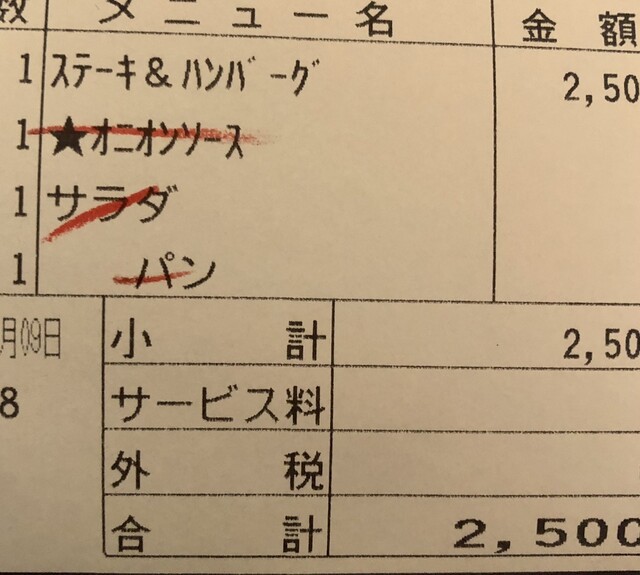 数 メニュー名 金額
1 ｽﾃｰｷ&ﾊﾝﾊﾞｰｸﾞ 2,50
1 ★ｵﾆｵﾝｿｰｽ
1 サラダ
1 パン
月09日 小計 2,50
8 サービス料
外税
合計 2,500